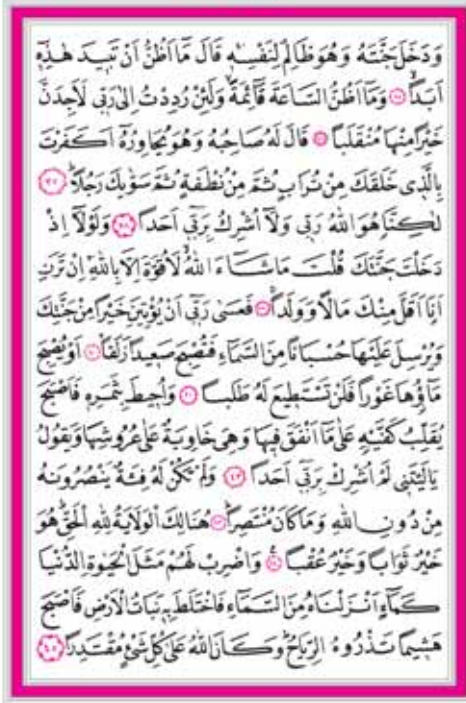 وَدَخَلَ جَنَّتَهُ وَهُوَ ظَالِمٌ لِنَفْسِهِ قَالَ مَٓا اَظُنُّ اَنْ تَب۪يدَ هٰذِه۪ٓ
اَبَداًۙ ﴿٣٥﴾ وَمَٓا اَظُنُّ السَّاعَةَ قَٓائِمَةً وَلَئِنْ رُدِدْتُ اِلٰى رَبّ۪ي لَاَجِدَنَّ
خَيْراً مِنْهَا مُنْقَلَباً ﴿٣٦﴾ قَالَ لَهُ صَاحِبُهُ وَهُوَ يُحَاوِرُهُٓ اَكَفَرْتَ
بِالَّذ۪ي خَلَقَكَ مِنْ تُرَابٍ ثُمَّ مِنْ نُطْفَةٍ ثُمَّ سَوّٰيكَ رَجُلاً ﴿٣٧﴾
لٰكِنَّا۬ هُوَ اللّٰهُ رَبّ۪ي وَلَٓا اُشْرِكُ بِرَبّ۪ٓي اَحَداً ﴿٣٨﴾ وَلَوْلَٓا اِذْ
دَخَلْتَ جَنَّتَكَ قُلْتَ مَا شَٓاءَ اللّٰهُ لَا قُوَّةَ اِلَّا بِاللّٰهِ اِنْ تَرَنِ
اَنَا۬ اَقَلَّ مِنْكَ مَالاً وَوَلَداً ﴿٣٩﴾ فَعَسٰى رَبّ۪ٓي اَنْ يُؤْتِيَنِ خَيْراً مِنْ جَنَّتِكَ
وَيُرْسِلَ عَلَيْهَا حُسْبَاناً مِنَ السَّمَٓاءِ فَتُصْبِحَ صَع۪يداً زَلَقاً ﴿٤٠﴾ اَوْ يُصْبِحَ
مَٓاؤُ۬هَا غَوْراً فَلَنْ تَسْتَط۪يعَ لَهُ طَلَباً ﴿٤١﴾ وَاُح۪يطَ بِثَمَرِه۪ فَاَصْبَحَ
يُقَلِّبُ كَفَّيْهِ عَلٰى مَٓا اَنْفَقَ ف۪يهَا وَهِيَ خَاوِيَةٌ عَلٰى عُرُوشِهَا وَيَقُولُ
يَا لَيْتَن۪ي لَمْ اُشْرِكْ بِرَبّ۪ٓي اَحَداً ﴿٤٢﴾ وَلَمْ تَكُنْ لَهُ فِئَةٌ يَنْصُرُونَهُ
مِنْ دُونِ اللّٰهِ وَمَا كَانَ مُنْتَصِراً ﴿٤٣﴾ هُنَالِكَ الْوَلَايَةُ لِلّٰهِ الْحَقِّۜ هُوَ
خَيْرٌ ثَوَاباً وَخَيْرٌ عُقْباً ﴿٤٤﴾ وَاضْرِبْ لَهُمْ مَثَلَ الْحَيٰوةِ الدُّنْيَا
كَمَٓاءٍ اَنْزَلْنَاهُ مِنَ السَّمَٓاءِ فَاخْتَلَطَ بِه۪ نَبَاتُ الْاَرْضِ فَاَصْبَحَ
هَش۪يماً تَذْرُوهُ الرِّيَاحُۜ وَكَانَ اللّٰهُ عَلٰى كُلِّ شَيْءٍ مُقْتَدِراً ﴿٤٥﴾